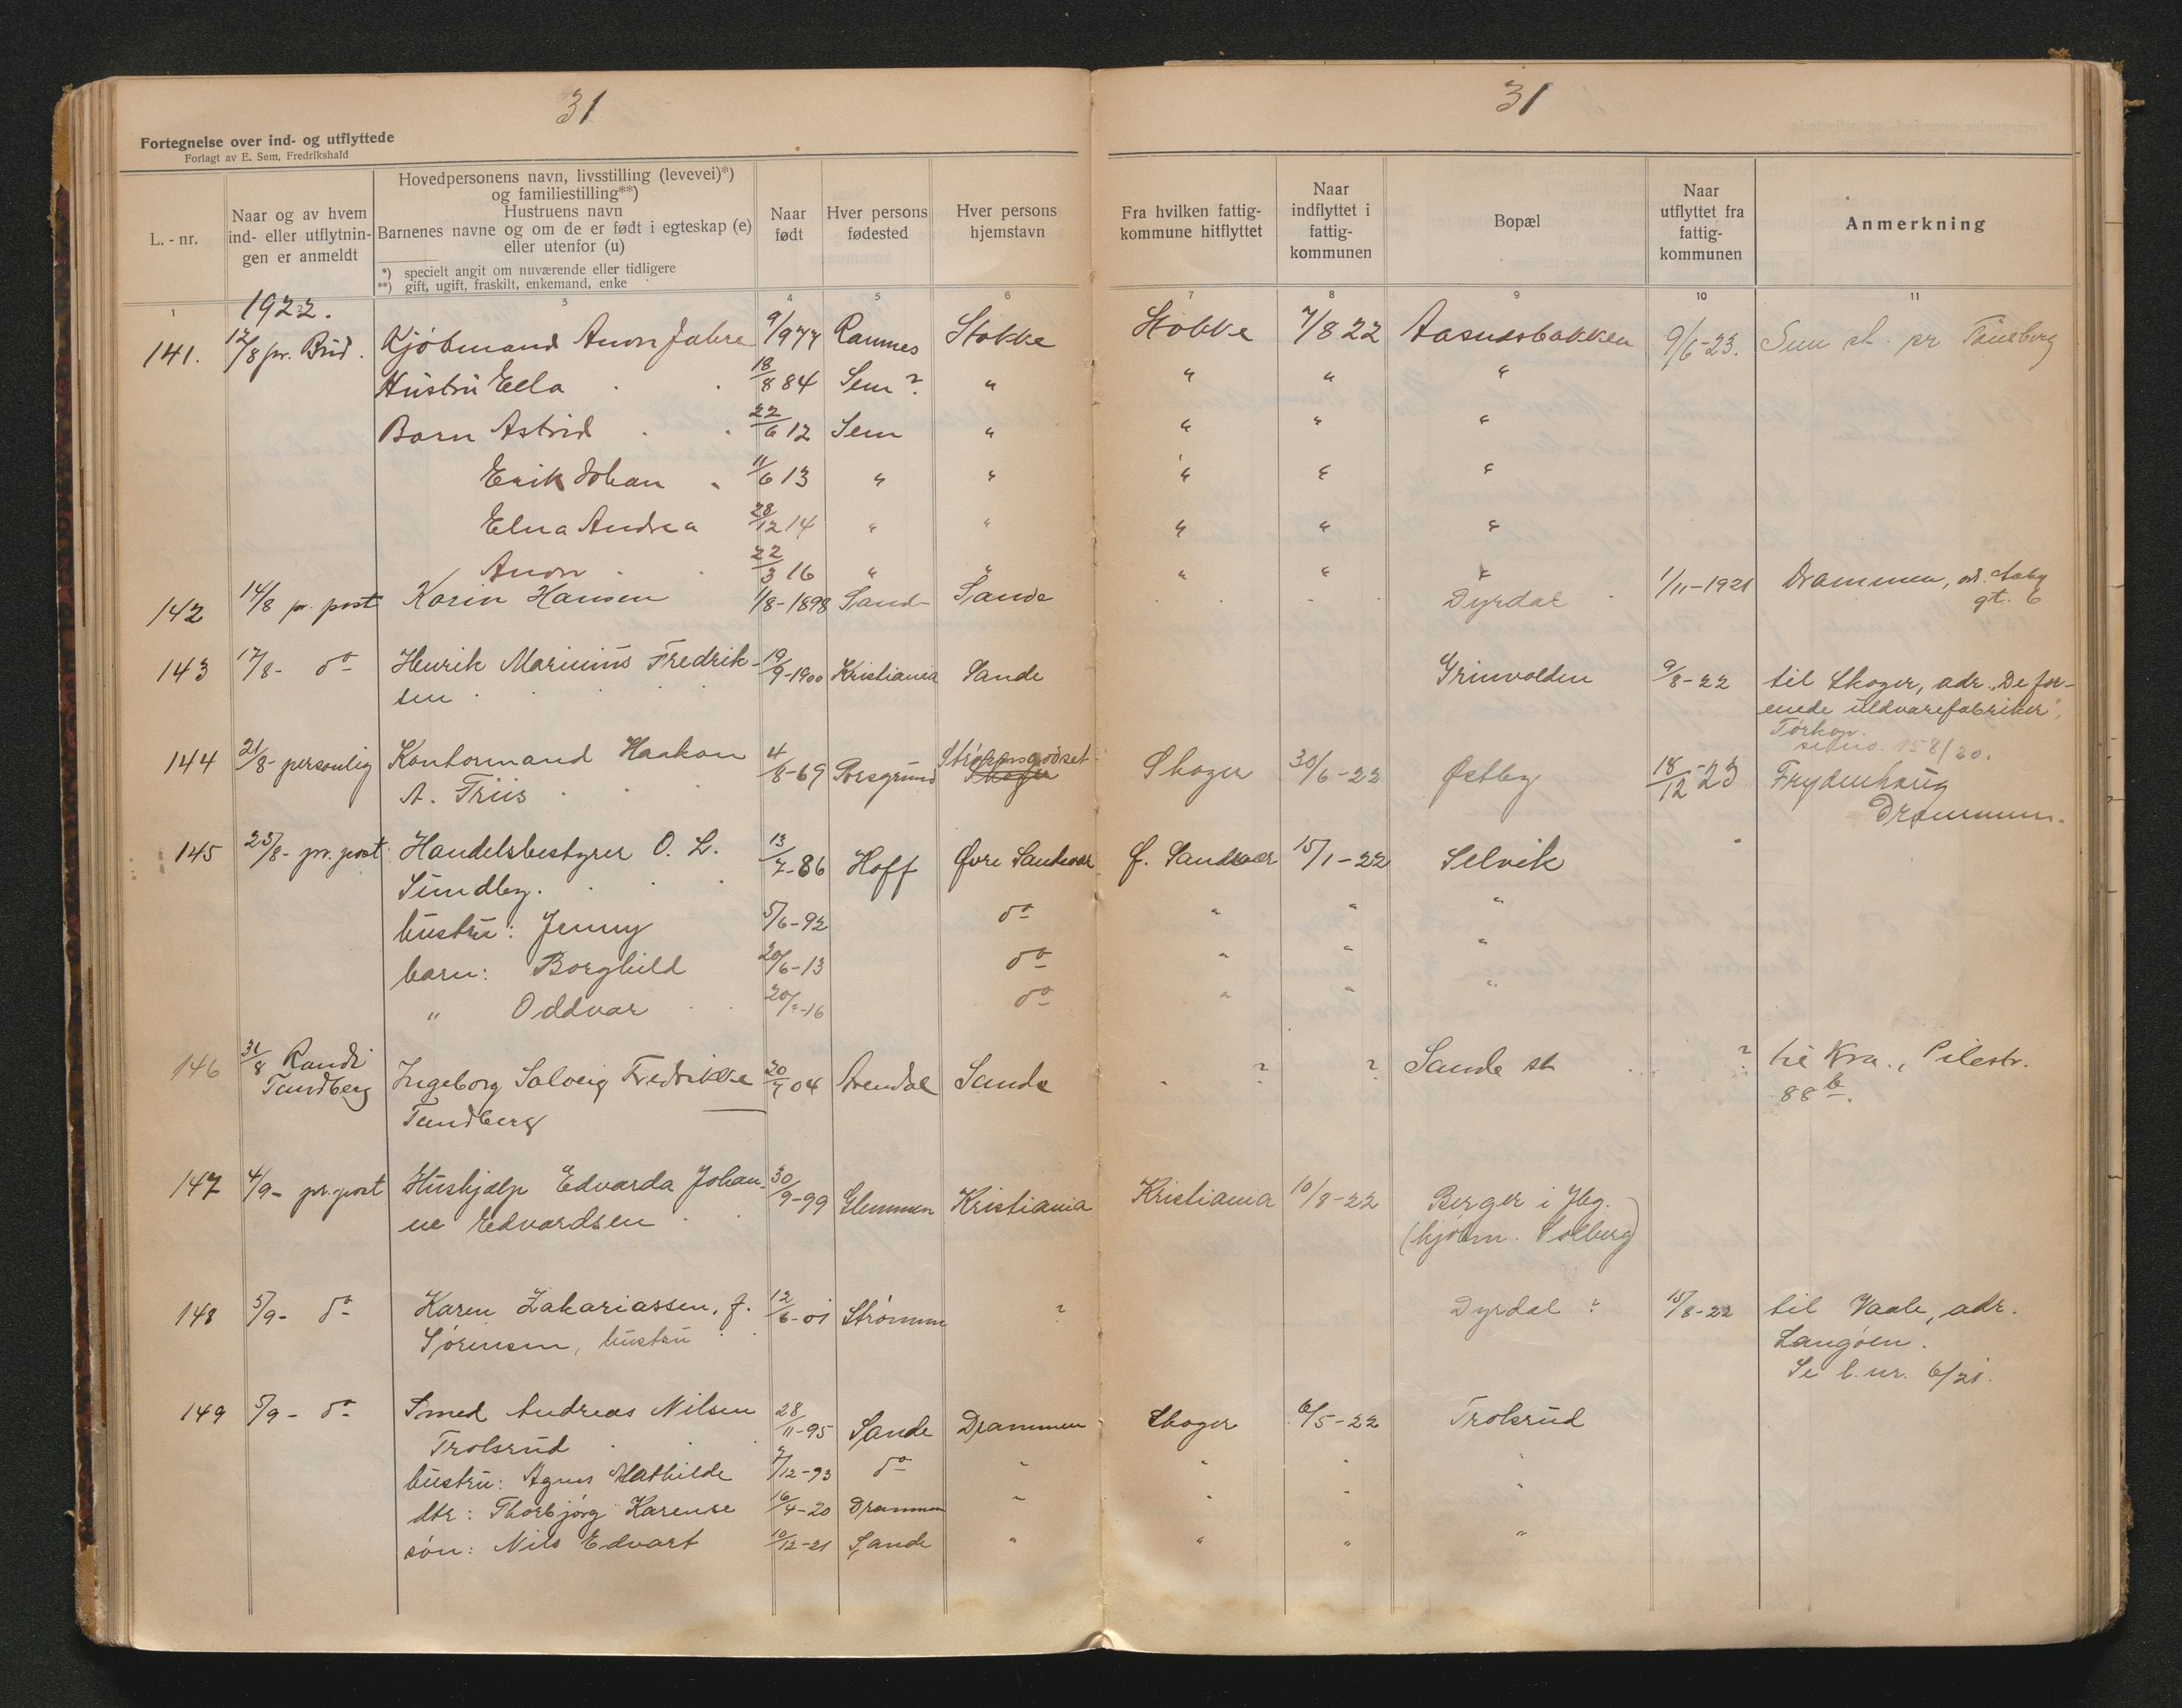 31
31
Fortegnelse over ind- og utflyttede
Forlagt av E. Sem, Fredrikshald
L.-nr.
Naar og av hvem
ind- eller utflytnin-
gen er anmeldt
Hovedpersonens navn, livsstilling (levevei)*)
og familiestilling**)
Hustruens navn
Barnenes navne og om de er født i egteskap (e)
eller utenfor (u)
*) specielt angit om nuværende eller tidligere
**) gift, ugift, fraskilt, enkemand, enke
Naar
født
Hver persons
fødested
Hver persons
hjemstavn
Fra hvilken fattig-
kommune hitflyttet
Naar
indflyttet i
fattig-
kommunen
Bopæl
Naar
utflyttet fra
fattig-
kommunen
Anmerkning
1 3 4 5 6 7 8 9 10 11
1922.
141. 12/8 pr. Bud. Kjøbmand Anon Jahre 9/9 77 Ramnes Stokke Stokke 7/8 22 Aasnesbakken 9/6-23. Sem st. pr Tønsberg
Hustru Ella 18/8 84 Sem? " " " "
Barn Astrid 22/6 12 Sem " " " "
Erik Johan 11/6 13 " " " " "
Elna Andrea 28/12 14 " " " " "
Anon 22/3 16 " " " " "
142 14/8 pr. post Karin Hansen 1/8-1898 Sande Sande Dyrdal 1/11-1921 Drammen, adr.
gt. 6
143 17/8- do Henrik Marinius Fredrik- 19/9-1900 Kristiania Sande Grinvolden 9/8-22 til Skoger, adr. "De for-
sen enede uldvarefabriker",
158/20.
144 21/8- personlig Kontormand Haakon 4/8-69 Porsgrund Strømsgodset Skoger Skoger 30/6-22 Østby 18/12-23 Frydenhaug
A. Friis Drammen.
145 23/8- pr. post Handelsbestyrer O. L. 13/7-86 Hoff Øvre Sandsvær Ø. Sandsvær 15/1-22 Selvik
Sundby.
hustru: Jenny 5/6-92 do " " "
barn: Borghild 20/6-13 do " " "
" Oddvar 20/ -16 do " " "
146 31/8 Randi Ingeborg Solveig Fredrikke 20/7 04 Arendal Sande ? ? Sande st ? til Kra., Pilestr.
Tandberg Tandberg 88 b.
147 4/9- pr. post Hushjælp Edvarda Johan- 30/9-99 Glemmen Kristiania Kristiania 10/8-22 Berger i Jbg.
ne Edvardsen (kjøbm. Solberg)
148 5/9- do Karen Zakariassen, f. 12/6-01 Strømm ? Dyrdal ? 15/8-22 til Vaale, adr.
Sørensen, hustru Langøen.
Se l.nr. 6/21.
149 5/9- do Smed Andreas Nilsen 28/11-95 Sande Drammen Skoger 6/5-22 Trolsrud
Trolsrud
hustru: Agnes Mathilde 7/12-93 do " " " "
dtr: Thorbjørg Karense 16/4-20 Drammen " " " "
søn: Nils Edvart 10/12-21 Sande " " " "